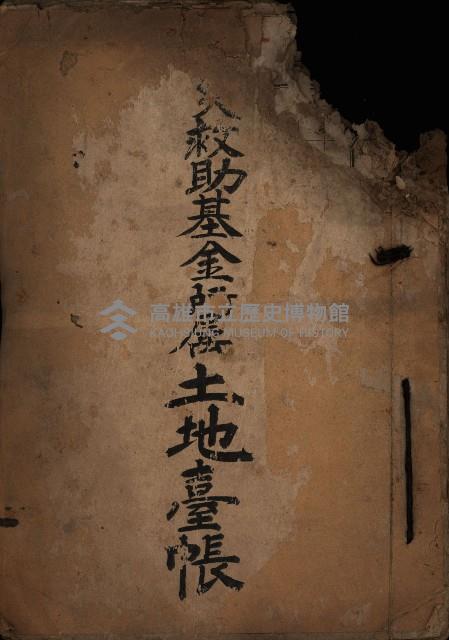 災救助基金所屬土地臺帳
高雄市立歷史博物館
KAOHSIUNG MUSEUM OF HISTORY